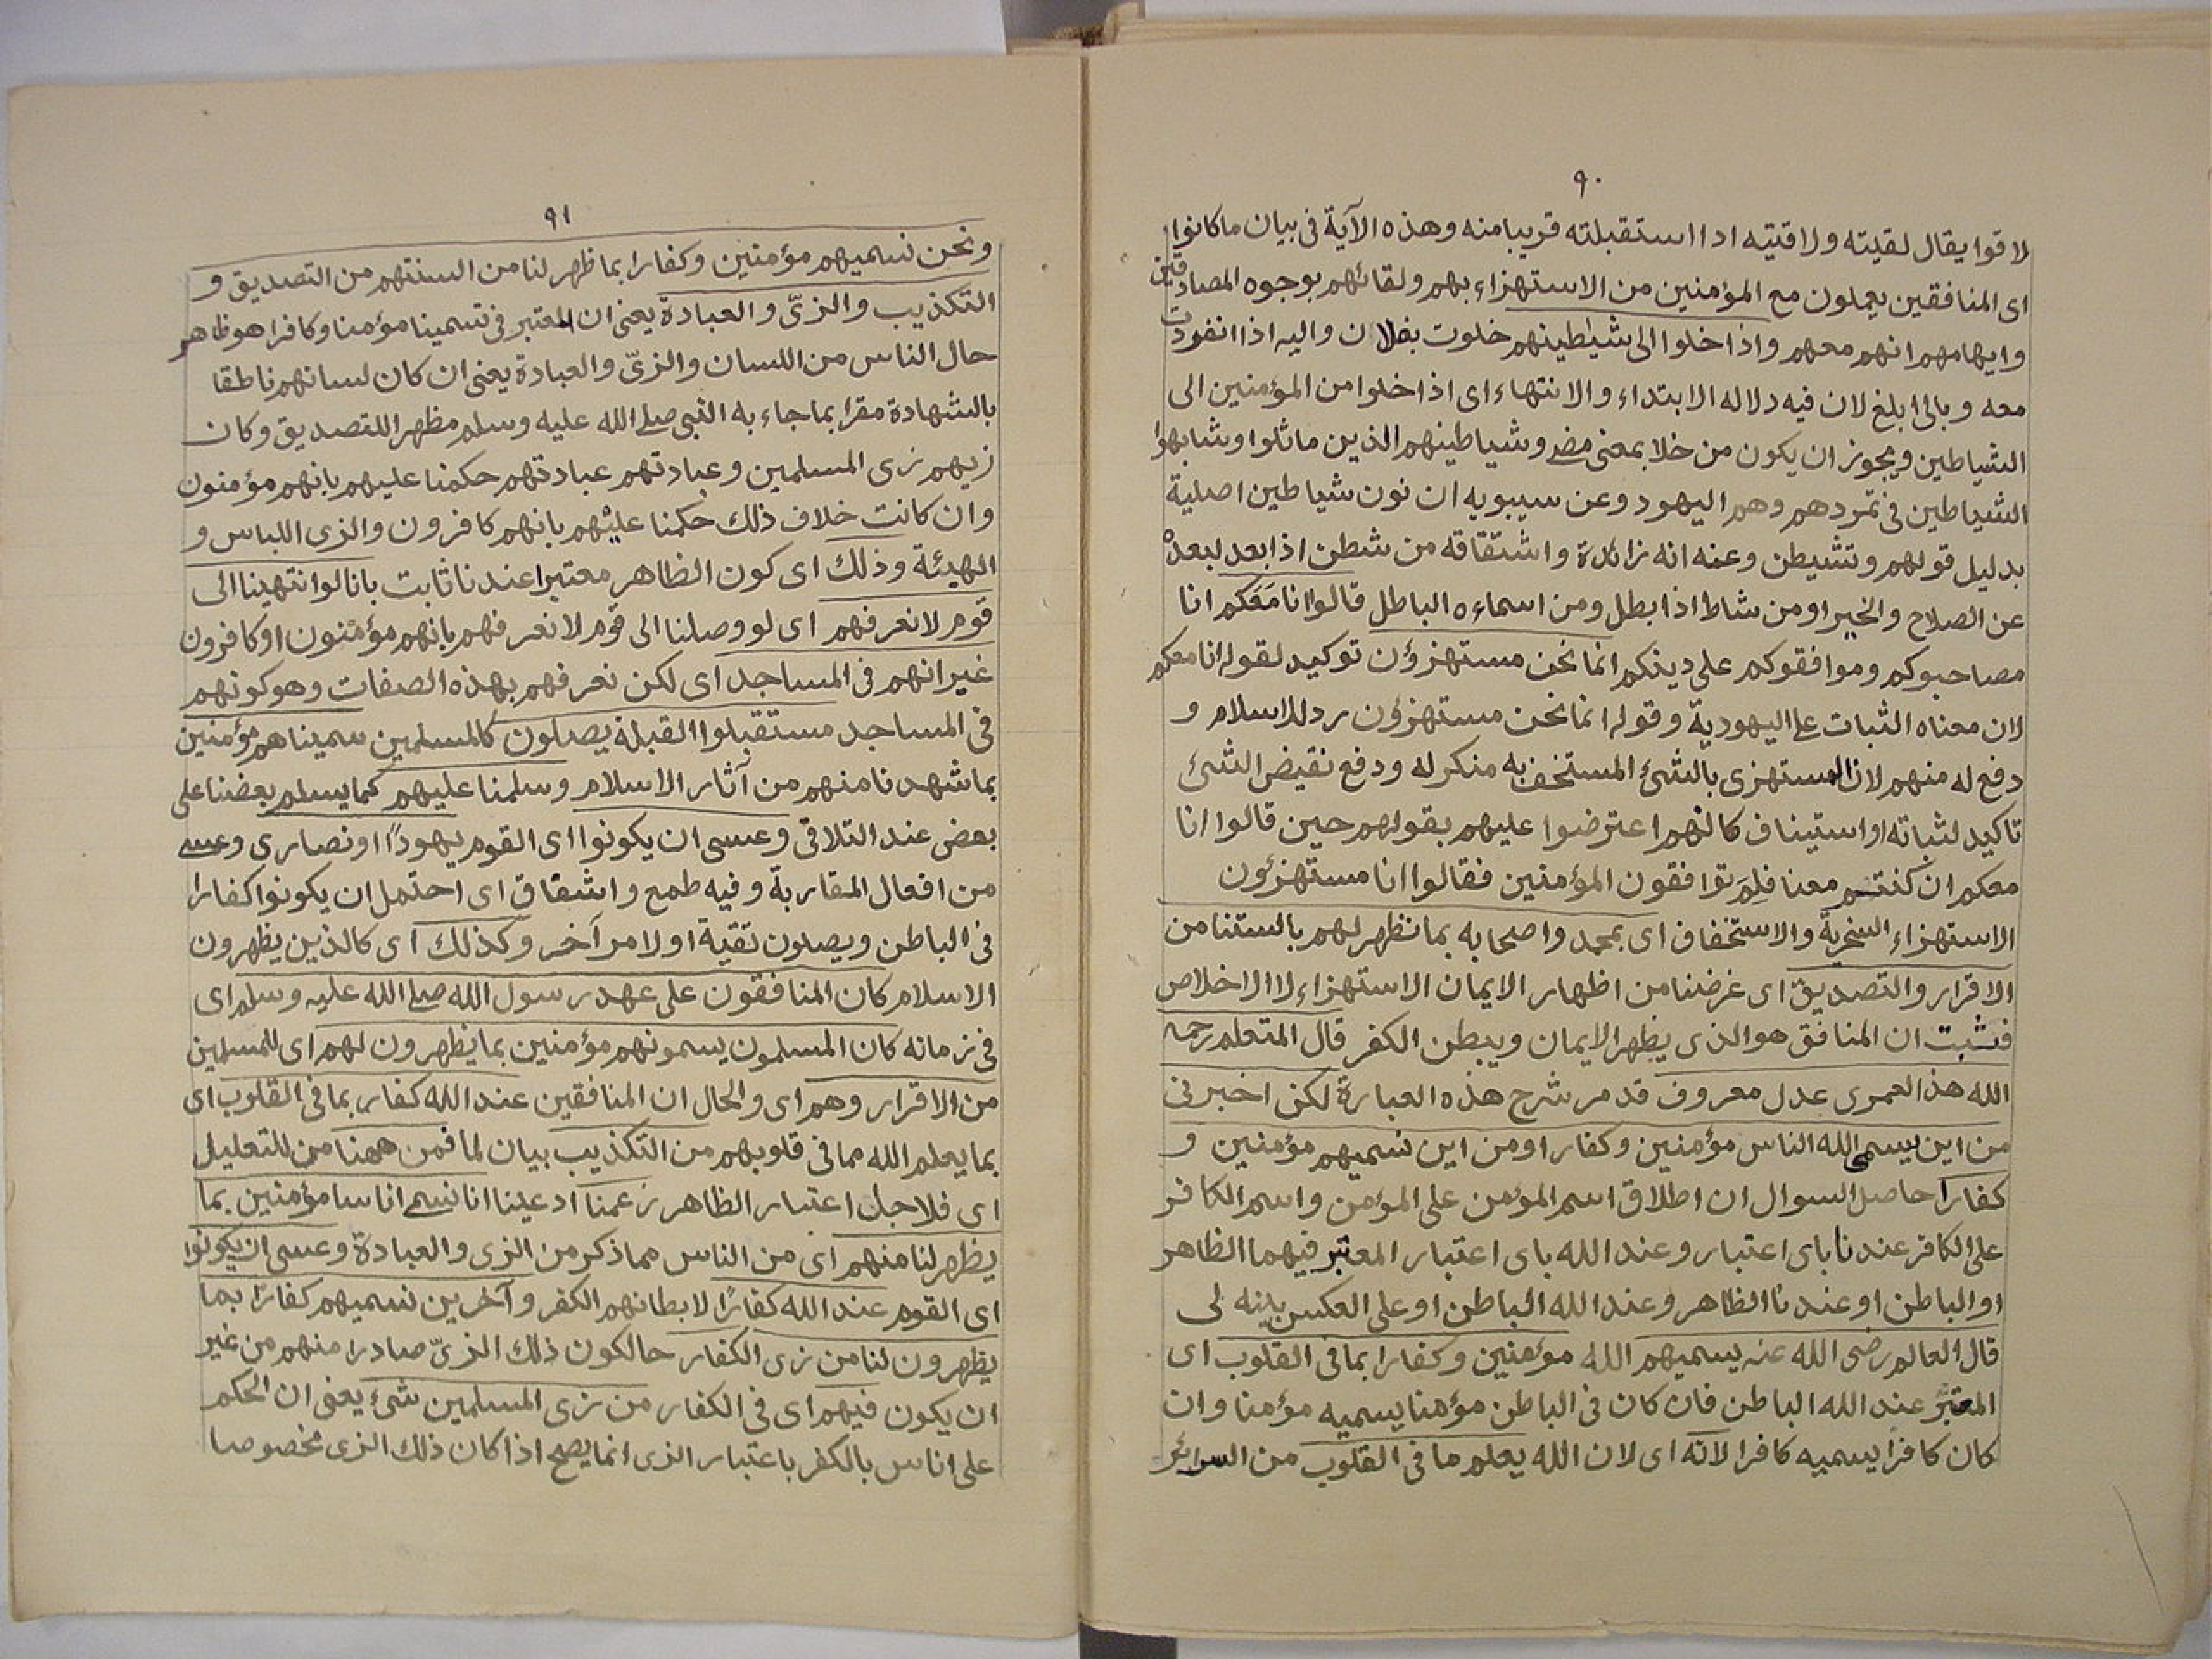 ٩٠
لاقوا يقال لقيته ولاقيته اذا استقبلته قريبا منه وهذه الآية فى بيان ما كانوا
اى المنافقين يعملون مع المؤمنين من الاستهزاء بهم ولقائهم بوجوه المصادقين
وايهامهم انهم معهم واذا خلوا الى شيطينهم خلوت بفلان واليه اذا انفردت
معه وبالى ابلغ لان فيه دلاله الابتداء والانتهاء اى اذا خلوا من المؤمنين الى
الشياطين ويجوز ان يكون من خلا بمعنى مضى وشياطينهم الذين ماثلوا وشابهوا
الشياطين فى تمردهم وهم اليهود وعن سيبويه ان نون شياطين اصلية
بدليل قولهم وتشيطن وعنه انه زائدة واشتقاقه من شطن اذا بعد لبعده
عن الصلاح والخير او من شاط اذا بطل ومن اسماءه الباطل قالوا انا معكم انا
مصاحبوكم وموافقوكم على دينكم انما نحن مستهزؤن توكيد لقوله انا معكم
لان معناه الثبات على اليهودية وقوله انما نحن مستهزؤن رد للاسلام و
دفع له منهم لان المستهزى بالشئ المستخف به منكر له ودفع نقيض الشئ
تاكيد لثباته او استيناف كانهم اعترضوا عليهم بقولهم حين قالوا انا
معكم ان كنتم معنا فلم توافقون المؤمنين فقالوا انا مستهزؤن
الاستهزاء السخرية والاستخفاف اى بمحمد واصحابه بما نظهر لهم بالستنا من
الاقرار والتصديق اى غرضنا من اظهار الايمان الاستهزاء لا الاخلاص
فثبت ان المنافق هو الذى يظهر الايمان ويبطن الكفر قال المتعلم رحمه
الله هذا لعمرى عدل معروف قد مر شرح هذه العبارة لكن اخبرنى
من اين يسمى الله الناس مؤمنين وكفارا ومن اين نسميهم مؤمنين و
كفارا حاصل السوال ان اطلاق اسم المؤمن على المؤمن واسم الكافر
على الكافر عندنا باى اعتبار وعند الله باى اعتبار المعتبر فيهما الظاهر
او الباطن او عندنا الظاهر وعند الله الباطن او على العكس بينه لى
قال العالم رضى الله عنه يسميهم الله مؤمنين وكفارا بما فى القلوب اى
المعتبر عند الله الباطن فان كان فى الباطن مؤمنا يسميه مؤمنا وان
كان كافرا يسميه كافرا لانه اى لان الله يعلم ما فى القلوب من السرائر
٩١
ونحن نسميهم مؤمنين وكفارا بما ظهر لنا من السنتهم من التصديق و
التكذيب والزىّ والعبادة يعنى ان المعتبر فى تسمينا مؤمنا وكافرا هو ظاهر
حال الناس من اللسان والزىّ والعبادة يعنى ان كان لسانهم ناطقا
بالشهادة مقرا بما جاء به النبى صلے الله عليه وسلم مظهرا للتصديق وكان
زيهم زى المسلمين وعبادتهم عبادتهم حكمنا عليهم بانهم مؤمنون
وان كانت خلاف ذلك حكمنا عليهم بانهم كافرون والزى اللباس و
الهيئة وذلك اى كون الظاهر معتبرا عندنا ثابت بانا لو انتهينا الى
قوم لا نعرفهم اى لو وصلنا الى قوم لا نعرفهم بانهم مؤمنون او كافرون
غير انهم فى المساجد اى لكن نعرفهم بهذه الصفات وهو كونهم
فى المساجد مستقبلوا القبلة يصلون كالمسلمين سميناهم مؤمنين
بما شهدنا منهم من آثار الاسلام وسلمنا عليهم كما يسلم بعضنا على
بعض عند التلاقى وعسى ان يكونوا اى القوم يهودًا او نصارى وعسى
من افعال المقاربة وفيه طمع واشفاق اى احتمل ان يكونوا كفارا
فى الباطن ويصلون تقية او لامر آخر وكذلك اى كالذين يظهرون
الاسلام كان المنافقون على عهد رسول الله صلے الله عليه وسلم اى
فى زمانه كان المسلمون يسمونهم مؤمنين بما يظهرون لهم اى للمسلمين
من الاقرار وهم اى والحال ان المنافقين عند الله كفار بما فى القلوب اى
بما يعلم الله مما فى قلوبهم من التكذيب بيان لما فمن ههنا من للتعليل
اى فلاجل اعتبار الظاهر زعمنا ادعينا انا نسمى اناسا مؤمنين بما
يظهر لنا منهم اى من الناس مما ذكر من الزى والعبادة وعسى ان يكونوا
اى القوم عند الله كفارًا لابطانهم الكفر وآخرين نسميهم كفارًا بما
يظهرون لنا من زى الكفار حالكون ذلك الزىّ صادرا منهم من غير
ان يكون فيهم اى فى الكفار من زى المسلمين شئ يعنى ان الحكم
على اناس بالكفر باعتبار الزى انما يصح اذا كان ذلك الزى مخصوصا